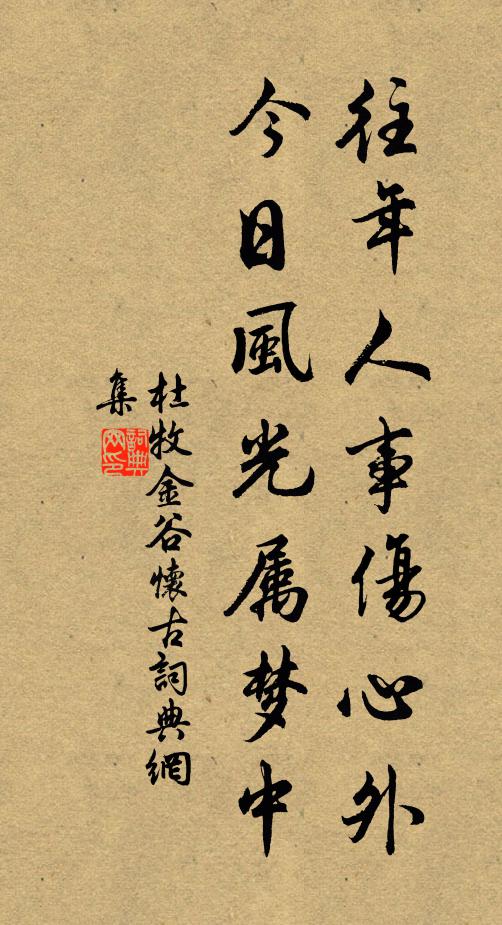 往年人事傷心外
今日風光属梦中
杜牧金谷懷古詞典網
集
詞典網印